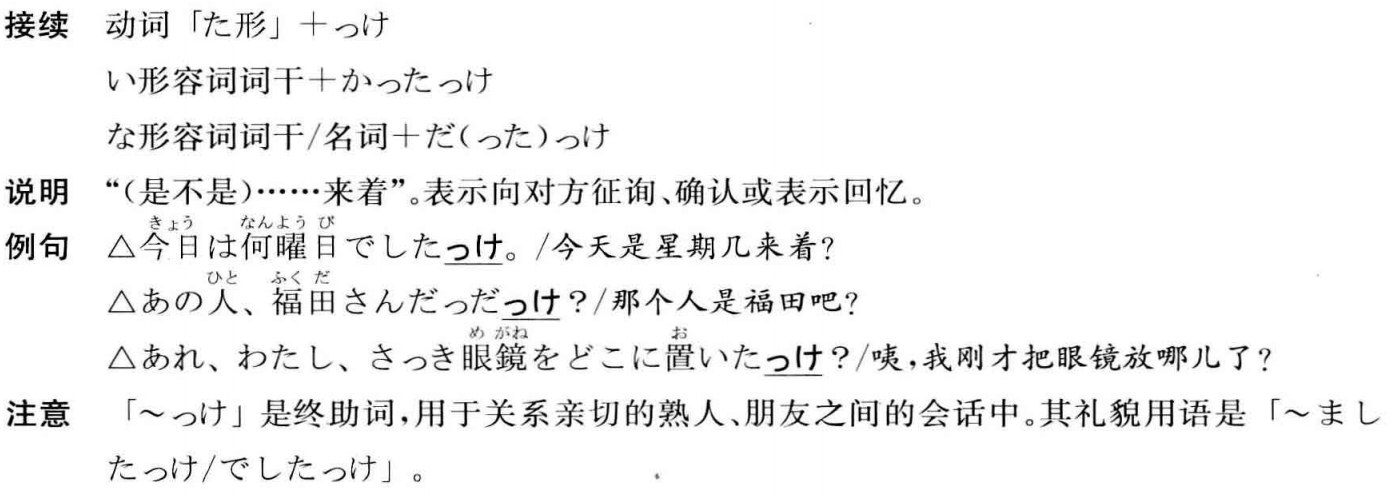 接续 动词「た形」＋っけ
い形容词词干＋かったっけ
な形容词词干/名词＋だ(った)っけ
说明 “(是不是)……来着”。表示向对方征询、确认或表示回忆。
きょう なんよう び
例句 △今日は何曜日でしたっけ。/今天是星期几来着?
ひと ふく だ
△あの人、福田さんだっだっけ?/那个人是福田吧?
め がね お
△あれ、わたし、さっき眼鏡をどこに置いたっけ?/咦,我刚才把眼镜放哪儿了?
注意 「～っけ」是终助词,用于关系亲切的熟人、朋友之间的会话中。其礼貌用语是「～まし
たっけ/でしたっけ」。